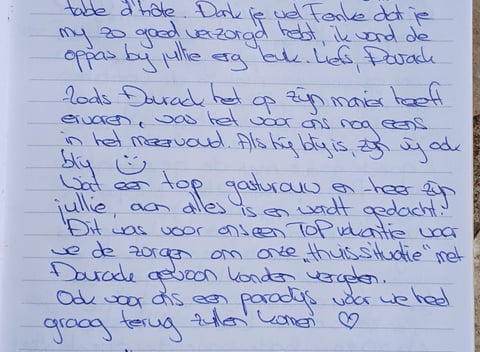 table d'hôte. Dank je wel Femke dat je
my zo goed verzorgd hebt, ik vond de
oppas by jullie erg leuk. Liefs, Dourack
Zoals Dourack het op zijn manier heeft
ervaren, was het voor ons nog eens
in het meervoud. Als hij blij is, zijn wij ook
blij ☺
Wat een top gastvrouw en -heer zijn
jullie, aan alles is en wordt gedacht.
Dit was voor ons een TOP vakantie waar
we de zorgen om onze "thuissituatie" met
Dourack gewoon konden vergeten.
Ook voor ons een paradijs waar we heel
graag terug zullen komen ♡